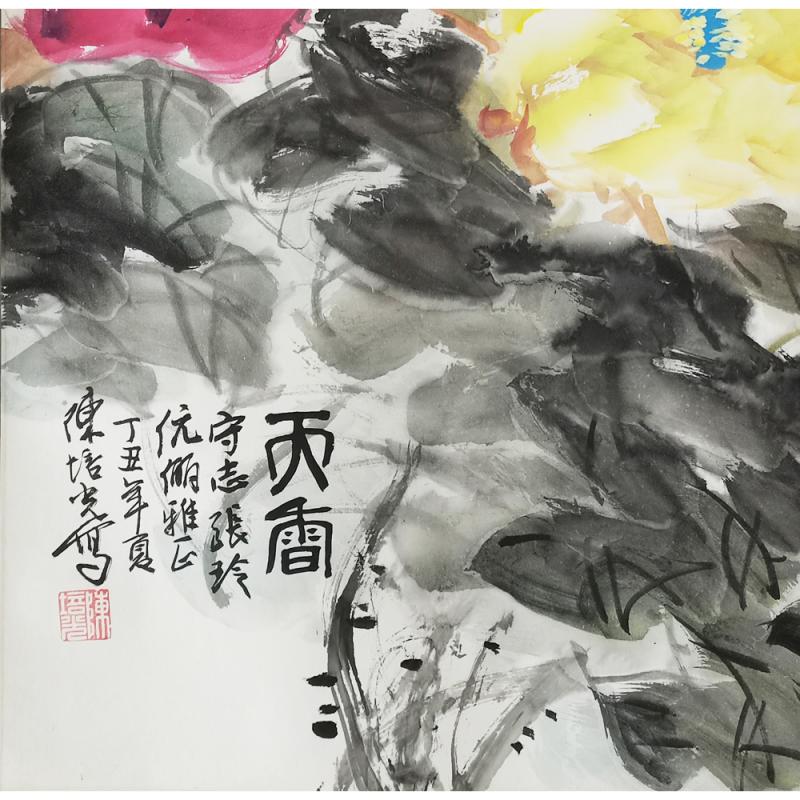 天香
守志張玲
伉儷雅正
丁丑年夏
陳培光寫
陳培光